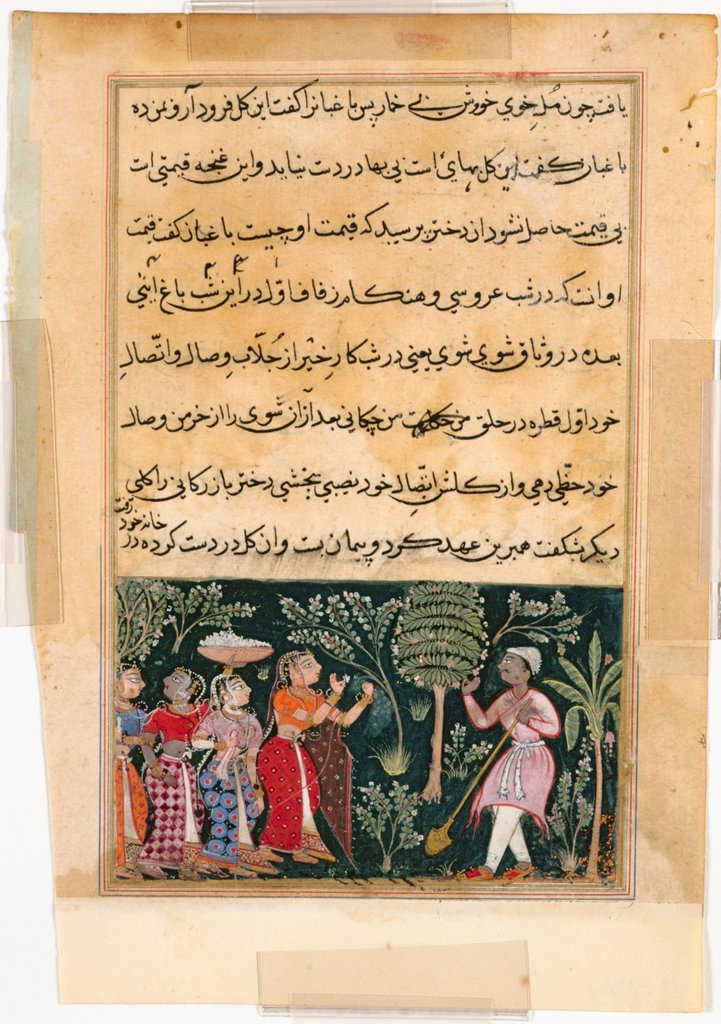 یافت چون مُل خوي خویش بی خمار پس باغبانرا گفت این کل فرود آر و نمزده
باغبان کفت این کل بهایٔ است بی بها در دست نیاید و این غنچه قیمتی است
بی قیمت حاصل نشود از دختر پرسید که قیمت او چیست باغبان کفت قیمت
او انت که در شب عروسي و هنکام زفاف اوّل در این شب باغ آئنی
بعده در وثاق شوي شوي یعني در شب کار خیر از جُلّاب وصال و اتّصال
خود اوّل قطره در حلق من چکانی بعد از آن شوی را از خرمن وصال
خود حظّي دهي و از کلشن اتّصال خود نصیبي بخشي دختر بازرکانی را کلی
دیکر بشکفت همبرین عهد کرد و پیمان بست و ان کل در دست کرده در
خانه خود رفت